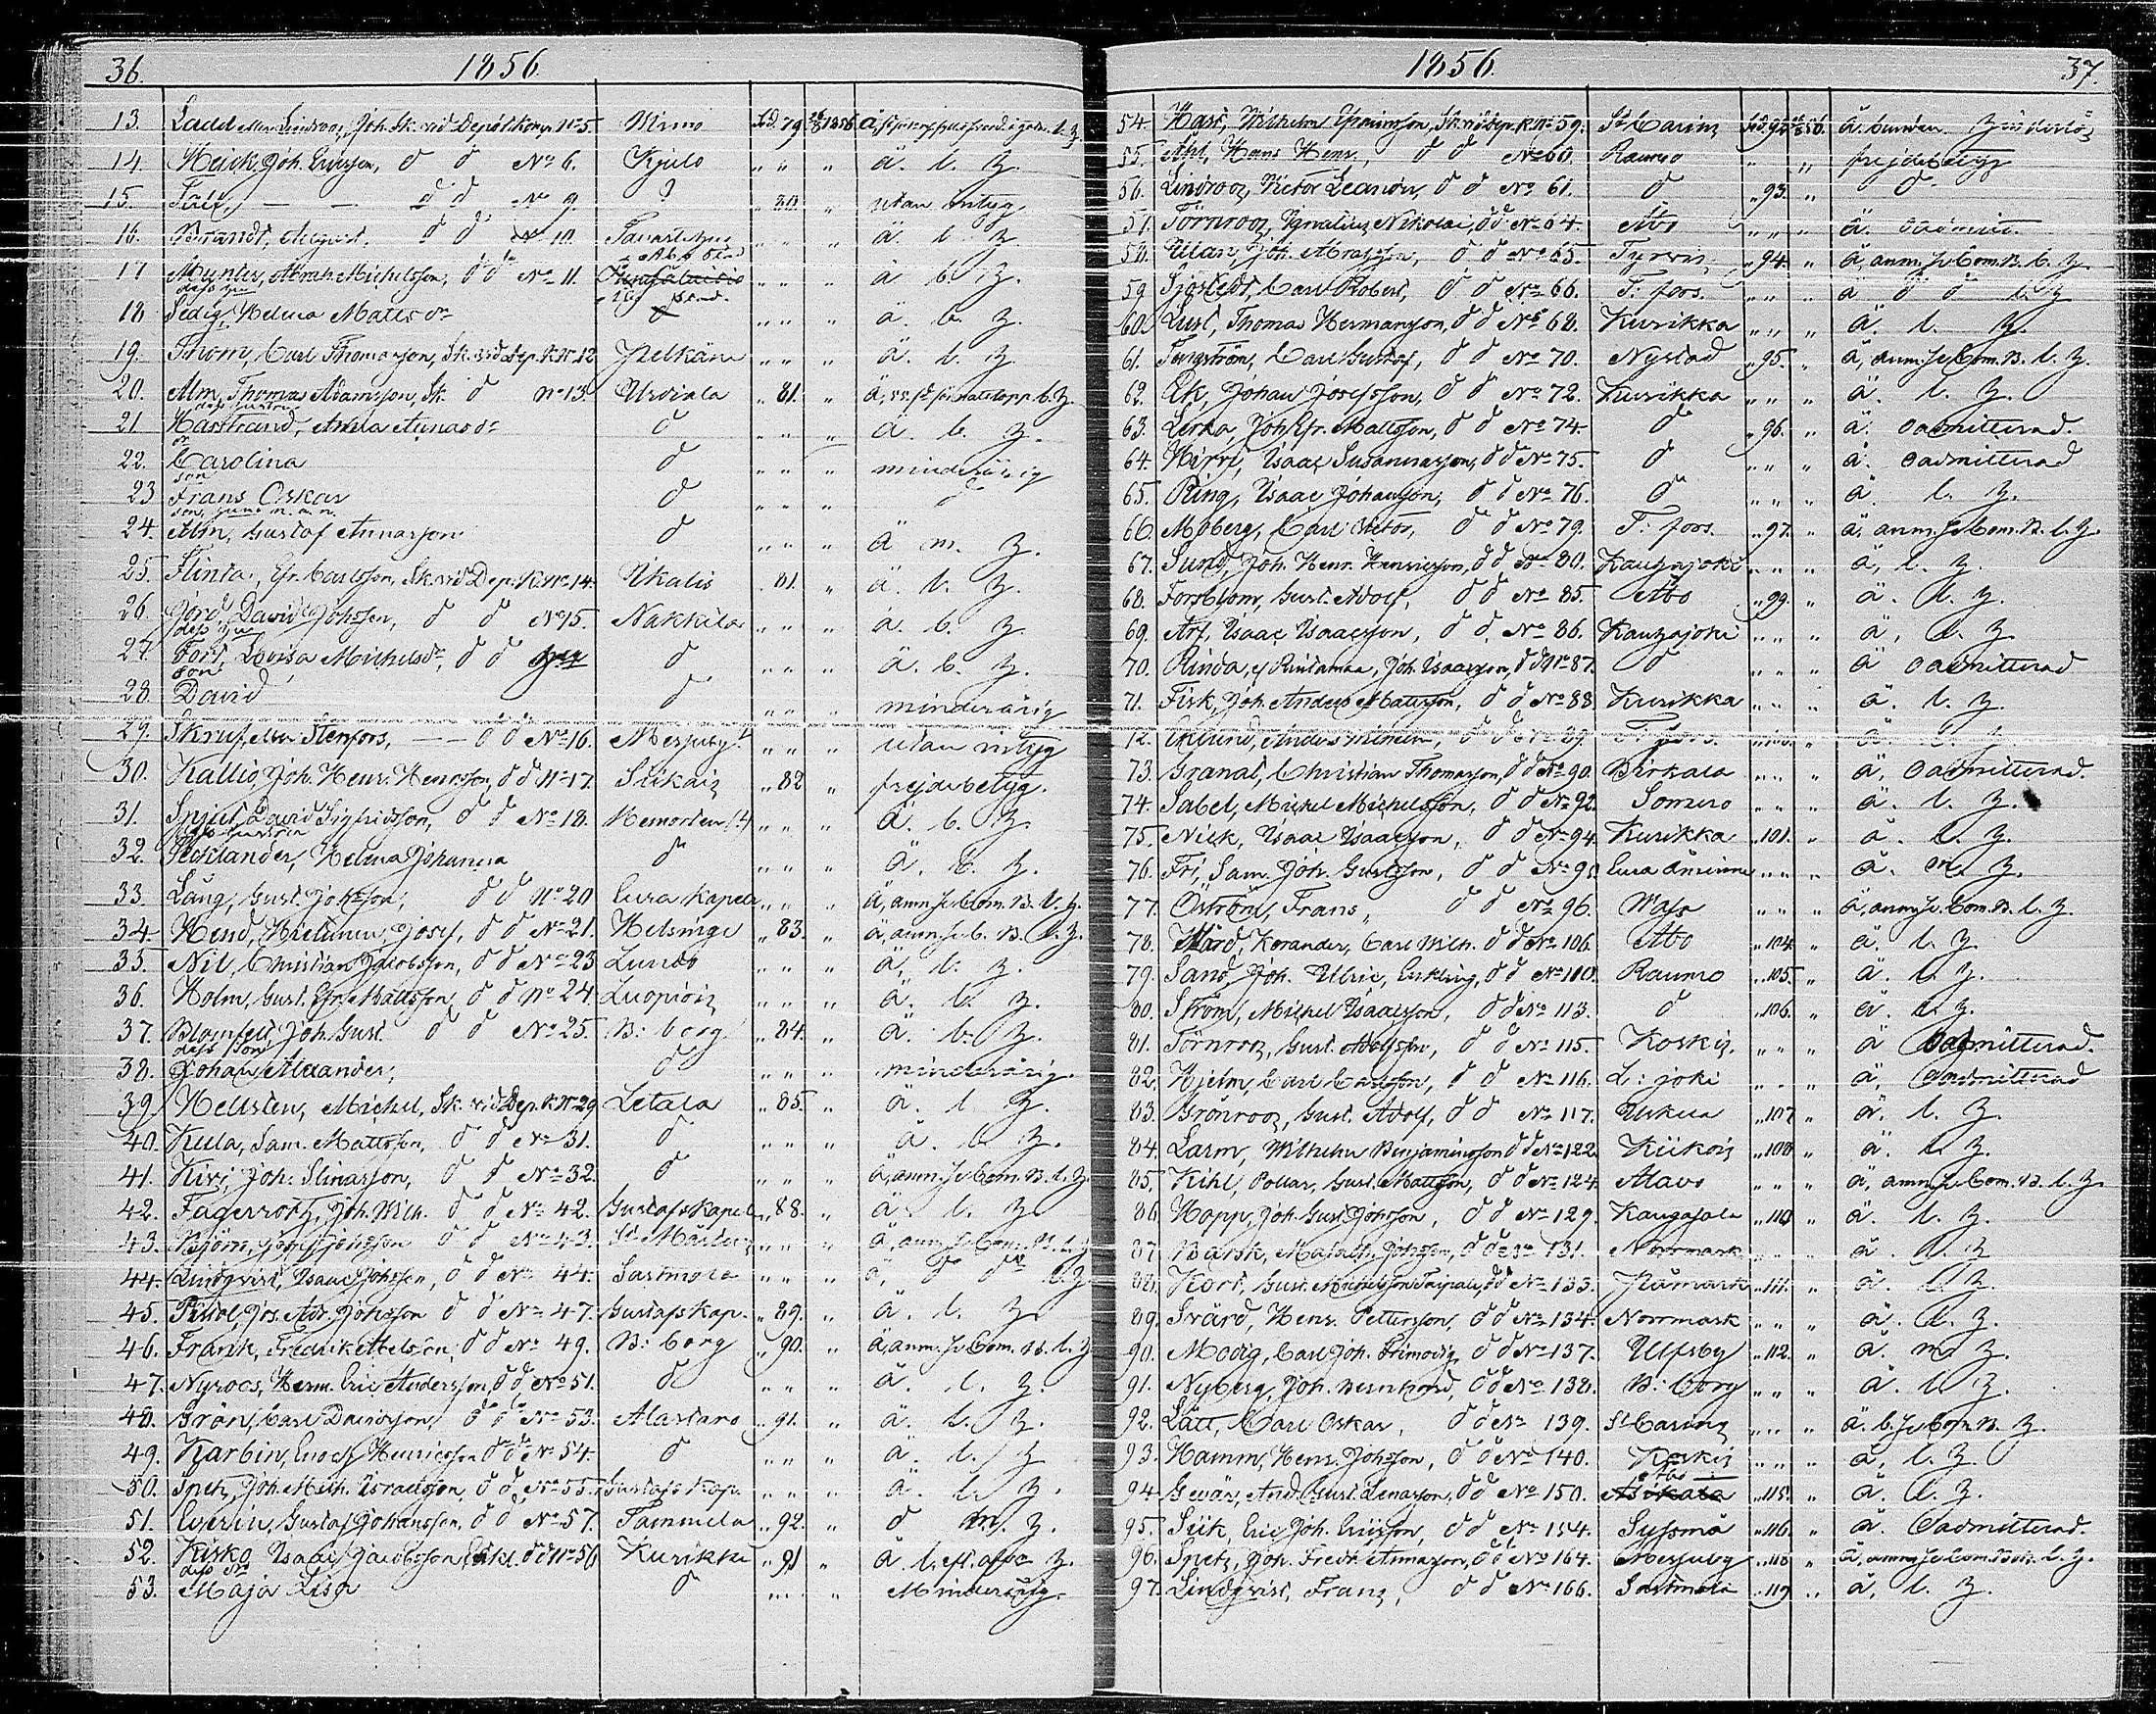 36. 1856.
13. Ladd eller Lindroos, Joh. Sk. vid Depôt komp. No 5. Virmo Sd. 79 1856.
14. Heick, Joh. Ericsson, d d No 6. Kjulo " " " ä. l. z.
15. Falt, — — d d No 9. ? " 80 " utan intyg
16. Brandt, August, d d No 10. " " " ä. l. z.
17 Munter, Abrah. Michelsson, d d No 11. " " " ä b. z.
18 Sedig, Helena Matts dr d " " " ä. b. z.
19. Thom, Carl Thomasson, Sk. vid Dep. K. No 12 Pelkäne " " " ä. l. z.
20. Alm, Thomas Adamsson, Sk. d No 13 Urdiala " 81. "
dess hustru
21 Hasstrand, Anna Annasdr d " " " ä. b. z.
dr
22. Carolina d " " " minderårig
son
23 Frans Oskar d " " " d
24. Alm, Gustaf Annasson d " " " ä m. z.
25. Flinta, Efr. Carlsson, Sk. vid Dep. K. No 14. Ikalis . 81. " ä. l. z.
26. Gjord, David Johsson, d d No 15. Nakkila " " " ä. b. z.
27. Lovisa Michelsdr, d d d " " " ä. b. z.
son
28. David d " " " minderårig
29. Skruf, eller Stenfors, — — d d No 16. Merjerby? " " " utan intyg
30. Kallio, Joh. Henr. Henrsson, d d No 17. Siikais " 82 " frejdebetyg.
31. Spjut, David Sigfridsson, d d No 18. " " " ä. b. z.
dess hustru
32. Helena Johanna d " " " ä. b. z.
33. Lång, Gust. Johsson, d d No 20 Eura Kapell " " " ä, anm. Com. B. l. z.
34. Hend, Josef, d d No 21. Helsinge " 83. " ä, anm. C. B. l. z.
35. Nil, Christian Jacobsson, d d No 23 Lundo " " " ä, l. z.
36. Holm, Gust. Efr. Mattsson, d d No 24. Luopiois " " " ä. b. z.
37. Blomfelt, Joh. Gust. d d No 25. B: borg " 84. " ä. b. z.
dess son
38. Johan Alexander, d " " " minderårig.
39. Hellsten, Michel, Sk. vid Dep. K. No 29 Letala " 85. " ä. l. z.
40. Kula, Sam. Mattsson, d d No 31. d " " " ä. b. z.
41. Kivi, Joh. Elinasson, d d No 32. d " " " ä, anm. Com. B. l. z.
42. Joh. Wilh. d d No 42. Gustafs Kapell " 88. " ä l. z
43. Björn, Josef Johsson d d No 43. St Mårtens " " "
44. Lindqvist, Isaac Johsson, d d No 44. Sastmola " " " ä, d do l. z
45. Pistol, Jos. Adr. Johsson d d No 47. Gustafs Kap. " 89. " ä. l. z
46. Frank, Fredrik d d No 49. B: borg " 90. " ä, anm. Com. B. l. z
47. Nyroos, Herm. Eric Andersson, d d No 51. d " " " ä. l. z.
48. Grön, Carl Davidsson, d d No 53. Alastaro " 91. " ä. l. z.
49. Karbin, Enoch Henricsson d d No 54. d " " " ä. l. z
50. Spets, Joh. Math. Israelsson, d d No 55. Gustafs Kap. " " " ä. l. z.
51. Everin, Gustaf Johansson, d d No 57. Tammela " 92. " d m. z.
52. Kisko Isaac Jacobsson d d No 56 Kurikka " 91 "
dess dr
53. Maja Lisa d " " " Minderårig.
1856. 37.
54. Hast, Wilhelm Sk. vid Dep. K. No 59. St Carins Sd. 92
55. Ahl, Hans Henr. d d No 60. Raumo " " frejdebetyg
56. Lindroos, Victor Leander, d d No 61. d " 93. " d
57. Törnroos, Nikolai, d d No 64. Åbo " " " ä. oadmitt.
58. Ulan, Joh. d d No 65. Tyrvis " 94. " ä, anm. Com. B. l. z.
59 Sjöstedt, Carl Robert, d d No 66. T: fors. " " " ä d d l. z
60. Lust, Thomas Hermansson, d d No 68. Kurikka " " " ä. l. z.
61. Carl Gustaf, d d No 70. Nystad " 95. " ä, anm. Com. B. l. z.
62. Ek, Johan Josefsson, d d No 72. Kurikka " " " ä. l. z.
63. Lerka, Joh. Efr. Mattsson, d d No 74. d " 96. " ä. oadmitterad.
64. Hirvi, Isaac Susannasson, d d No 75. d " " " ä. oadmitterad
65. Ring, Isaac Johansson, d d No 76. d " " " ä. l. z.
66. Moberg, Carl Victor, d d No 79. T: fors. " 97. " ä, anm. Com. B. l. z.
67. Sund, Joh. Henr. Henricsson, d d No 80. Kauhajoki " " " ä, l. z.
68. Forsblom, Gust. Adolf, d d No 85. Åbo " 99. " ä. l. z.
69. Arf, Isaac Isaacsson, d d No 86. Kauhajoki " " " ä, l. z.
70. Rinda, el. Rindamaa, Joh. Isaacsson, d d No 87. d " " " ä oadmitterad
71. Fisk, Joh. Anders Mattsson, d d No 88 Kurikka " " " ä. l. z.
72. Eklund, Anders d d No 89. T: fors.
73. Granat, Christian Thomasson, d d No 90. Birkala " " " ä, oadmitterad.
74. Sabel, Michel Michelsson, d d No 92. Somero " " " ä. l. z.
75. Nick, Isaac Isaacsson, d d No 94. Kurikka " 101. " ä. l. z.
76. Fri, Sam. Joh. Gustsson, d d No 95. Eura åminne " " " ä. m. z.
77. Öström, Frans, d d No 96. Wasa " " " ä, anm. Com. B. l. z.
78. Korander, Carl Wilh. d d No 106. Åbo " 104. " ä. l. z.
79. Sand, Joh. Ulric, d d No 110. Raumo " 105. " ä. l. z.
80. Ström, Michel Isaacsson, d d No 113. d " 106. " ä. l. z.
81. Törnroos, Gust. Adolfsson, d d No 115. Koskis. " " " ä oadmitterad.
82. Hjelm, Carl Carlsson, d d No 116. L: joki " " " ä, oadmitterad
83. Grönroos, Gust. Adolf, d d No 117. Uskela " 107 " ä. l. z.
84. Larm, Wilhelm Benjaminsson d d No 122. Kiikois " 108 " ä. l. z.
85. Kihl, Pollar, Gust. Mattsson, d d No 124. Alavo " " " ä, anm. Com. B. l. z.
86. Hopp, Joh. Gust. Johsson, d d No 129. Kangasala " 110 " ä. l. z.
87. Barsk, Johsson, d d No 131. Norrmark " " " ä. l. z
88. Kort, Gust. Michelsson Taipale, d d No 133. Påmark " 111. " ä. l. z.
89. Svärd, Henr. Pettersson, d d No 134. Norrmark " " " ä. l. z.
90. Modig, Carl Joh. d d No 137. Ulfsby " 112. " ä. m z.
91. Nyberg, Joh. Bernhard, d d No 138. B: borg " " " ä. l. z.
92. Lätt, Carl Oskar, d d No 139. St Carins " " "
93. Hamm, Henr. Johsson, d d No 140. Koskis " " " ä, l. z.
94. Gevär, And. Gust. Lenasson, d d No 150. Åbo " 115. " ä. l. z.
95. Siik, Eric Joh. Ericsson, d d No 154. Sysmä " 116. " ä. oadmitterad.
96. Spets, Joh. Fredr. Annasson, d d No 164. Merjerby " 118 " ä, anm. l. z.
97. Lindqvist, Frans, d d No 166. Sastmola " 119 " ä, l. z.